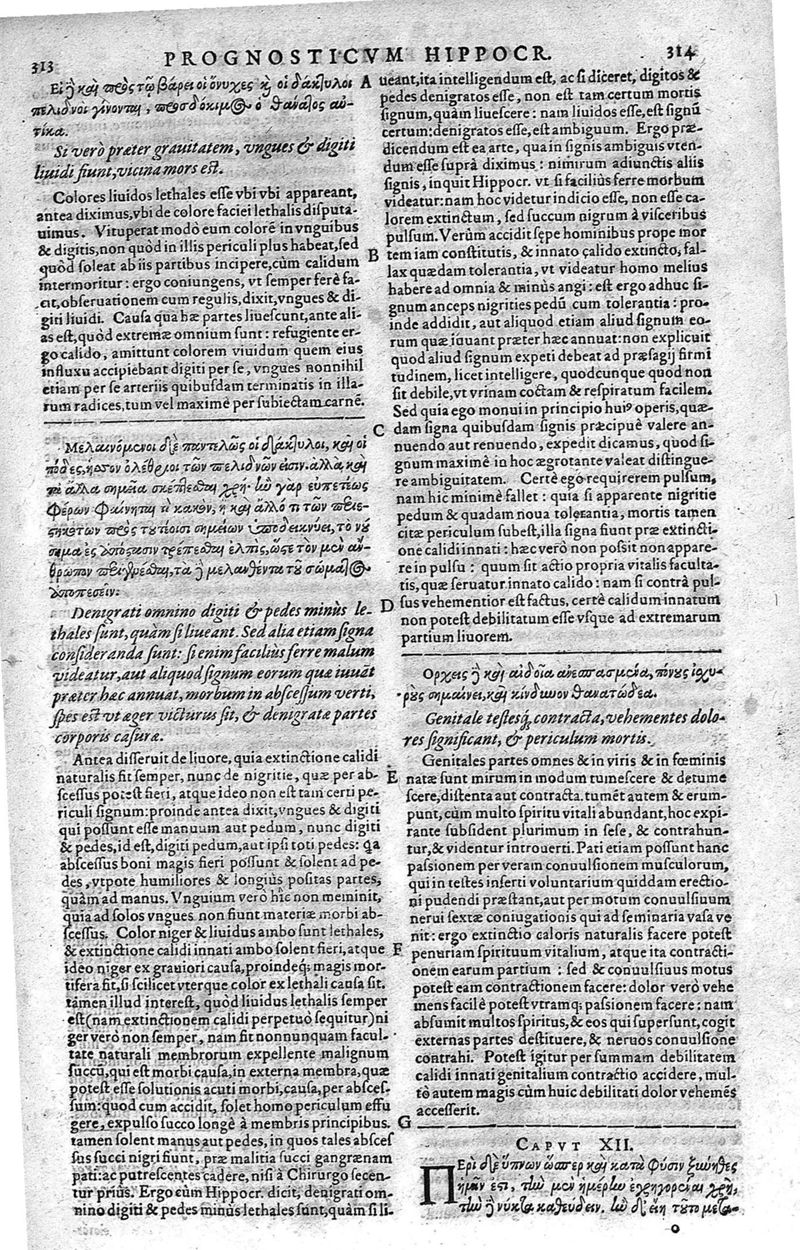 313
PROGNOSTICVM HIPPOCR.
314
Si verò præter grauitatem, vngues & digiti
liuidi fiunt, vicina mors est.
Colores liuidos lethales esse vbi vbi appareant,
antea diximus, vbi de colore faciei lethalis disputa-
uimus. Vituperat modò eum colorē in vnguibus
& digitis, non quòd in illis periculi plus habeat, sed
quòd soleat ab iis partibus incipere, cùm calidum
intermoritur: ergo coniungens, vt semper ferè fa-
cit, obseruationem cum regulis, dixit, vngues & di-
giti liuidi. Causa qua hæ partes liuescunt, ante ali-
as est, quòd extremæ omnium sunt: refugiente er-
go calido, amittunt colorem viuidum quem eius
influxu accipiebant digiti per se, vngues nonnihil
etiam per se arteriis quibusdam terminatis in illa-
rum radices, tum vel maximè per subiectam carnē.
Μελαινόμενοι δὲ παντελῶς οἱ δάκτυλοι, καὶ οἱ
Denigrati omnino digiti & pedes minùs le-
thales sunt, quàm si liueant. Sed alia etiam signa
consideranda sunt: si enim faciliùs ferre malum
videatur, aut aliquod signum eorum quæ iuuāt
præter hæc annuat, morbum in abscessum verti,
spes est vt æger victurus sit, & denigratæ partes
corporis casuræ.
Antea disseruit de liuore, quia extinctione calidi
naturalis fit semper, nunc de nigritie, quæ per ab-
scessus potest fieri, atque ideo non est tam certi pe-
riculi signum: proinde antea dixit, vngues & digiti
qui possunt esse manuum aut pedum, nunc digiti
& pedes, id est, digiti pedum, aut ipsi toti pedes: ꝗa
abscessus boni magis fieri possunt & solent ad pe-
des, vtpote humiliores & longiùs positas partes,
quàm ad manus. Vnguium verò hic non meminit,
quia ad solos vngues non fiunt materiæ morbi ab-
scessus. Color niger & liuidus ambo sunt lethales,
& extinctione calidi innati ambo solent fieri, atque
ideo niger ex grauiori causa, proindeq; magis mor-
tifera fit, si scilicet vterque color ex lethali causa sit.
tamen illud interest, quòd liuidus lethalis semper
est (nam extinctionem calidi perpetuò sequitur) ni
ger verò non semper, nam fit nonnunquam facul-
tate naturali membrorum expellente malignum
succū, qui est morbi causa, in externa membra, quæ
potest esse solutionis acuti morbi, causa, per absces-
sum: quod cum accidit, solet homo periculum effu
gere, expulso succo longè à membris principibus.
tamen solent manus aut pedes, in quos tales absces
sus succi nigri fiunt, præ malitia succi gangrænam
pati: ac putrescentes cadere, nisi à Chirurgo secen-
tur priùs. Ergo cùm Hippocr. dicit, denigrati om-
nino digiti & pedes minùs lethales sunt, quàm si li-
A
B
C
D
E
F
G
ueant, ita intelligendum est, ac si diceret, digitos &
pedes denigratos esse, non est tam certum mortis
signum, quàm liuescere: nam liuidos esse, est signū
certum: denigratos esse, est ambiguum. Ergo præ-
dicendum est ea arte, qua in signis ambiguis vten-
dum esse suprà diximus: nimirum adiunctis aliis
signis, inquit Hippocr. vt si faciliùs ferre morbum
videatur: nam hoc videtur indicio esse, non esse ca-
lorem extinctum, sed succum nigrum à visceribus
pulsum. Verùm accidit sępe hominibus prope mor
tem iam constitutis, & innato calido extincto, fal-
lax quædam tolerantia, vt videatur homo melius
habere ad omnia & minùs angi: est ergo adhuc si-
gnum anceps nigrities pedū cum tolerantia: pro-
inde addidit, aut aliquod etiam aliud signum eo-
rum quæ iuuant præter hæc annuat: non explicuit
quod aliud signum expeti debeat ad præsagij firmi
tudinem, licet intelligere, quodcunque quod non
sit debile, vt vrinam coctam & respiratum facilem.
Sed quia ego monui in principio huiꝰ operis, quæ-
dam signa quibusdam signis præcipuè valere an-
nuendo aut renuendo, expedit dicamus, quod si-
gnum maximè in hoc ægrotante valeat distingue-
re ambiguitatem. Certè ego requirerem pulsum,
nam hic minimè fallet: quia si apparente nigritie
pedum & quadam noua tolerantia, mortis tamen
citæ periculum subest, illa signa fiunt præ extincti-
one calidi innati: hæc verò non possit non appare-
re in pulsu: quum sit actio propria vitalis faculta-
tis, quæ seruatur innato calido: nam si contrà pul-
sus vehementior est factus, certè calidum innatum
non potest debilitatum esse vsque ad extremarum
partium liuorem.
Genitale testesq́; contracta, vehementes dolo-
res significant, & periculum mortis.
Genitales partes omnes & in viris & in fœminis
natæ sunt mirum in modum tumescere & detume
scere, distenta aut contracta. tumēt autem & erum-
punt, cùm multo spiritu vitali abundant, hoc expi-
rante subsident plurimum in sese, & contrahun-
tur, & videntur introuerti. Pati etiam possunt hanc
passionem per veram conuulsionem musculorum,
qui in testes inserti voluntarium quiddam erectio-
ni pudendi præstant, aut per motum conuulsiuum
nerui sextæ coniugationis qui ad seminaria vasa ve
nit: ergo extinctio caloris naturalis facere potest
penuriam spirituum vitalium, atque ita contracti-
onem earum partium: sed & conuulsiuus motus
potest eam contractionem facere: dolor verò vehe
mens facilè potest vtramq; passionem facere: nam
absumit multos spiritus, & eos qui supersunt, cogit
externas partes destituere, & neruos conuulsione
contrahi. Potest igitur per summam debilitatem
calidi innati genitalium contractio accidere, mul-
tò autem magis cùm huic debilitati dolor vehemēs
accesserit.
CAPVT XII.
o